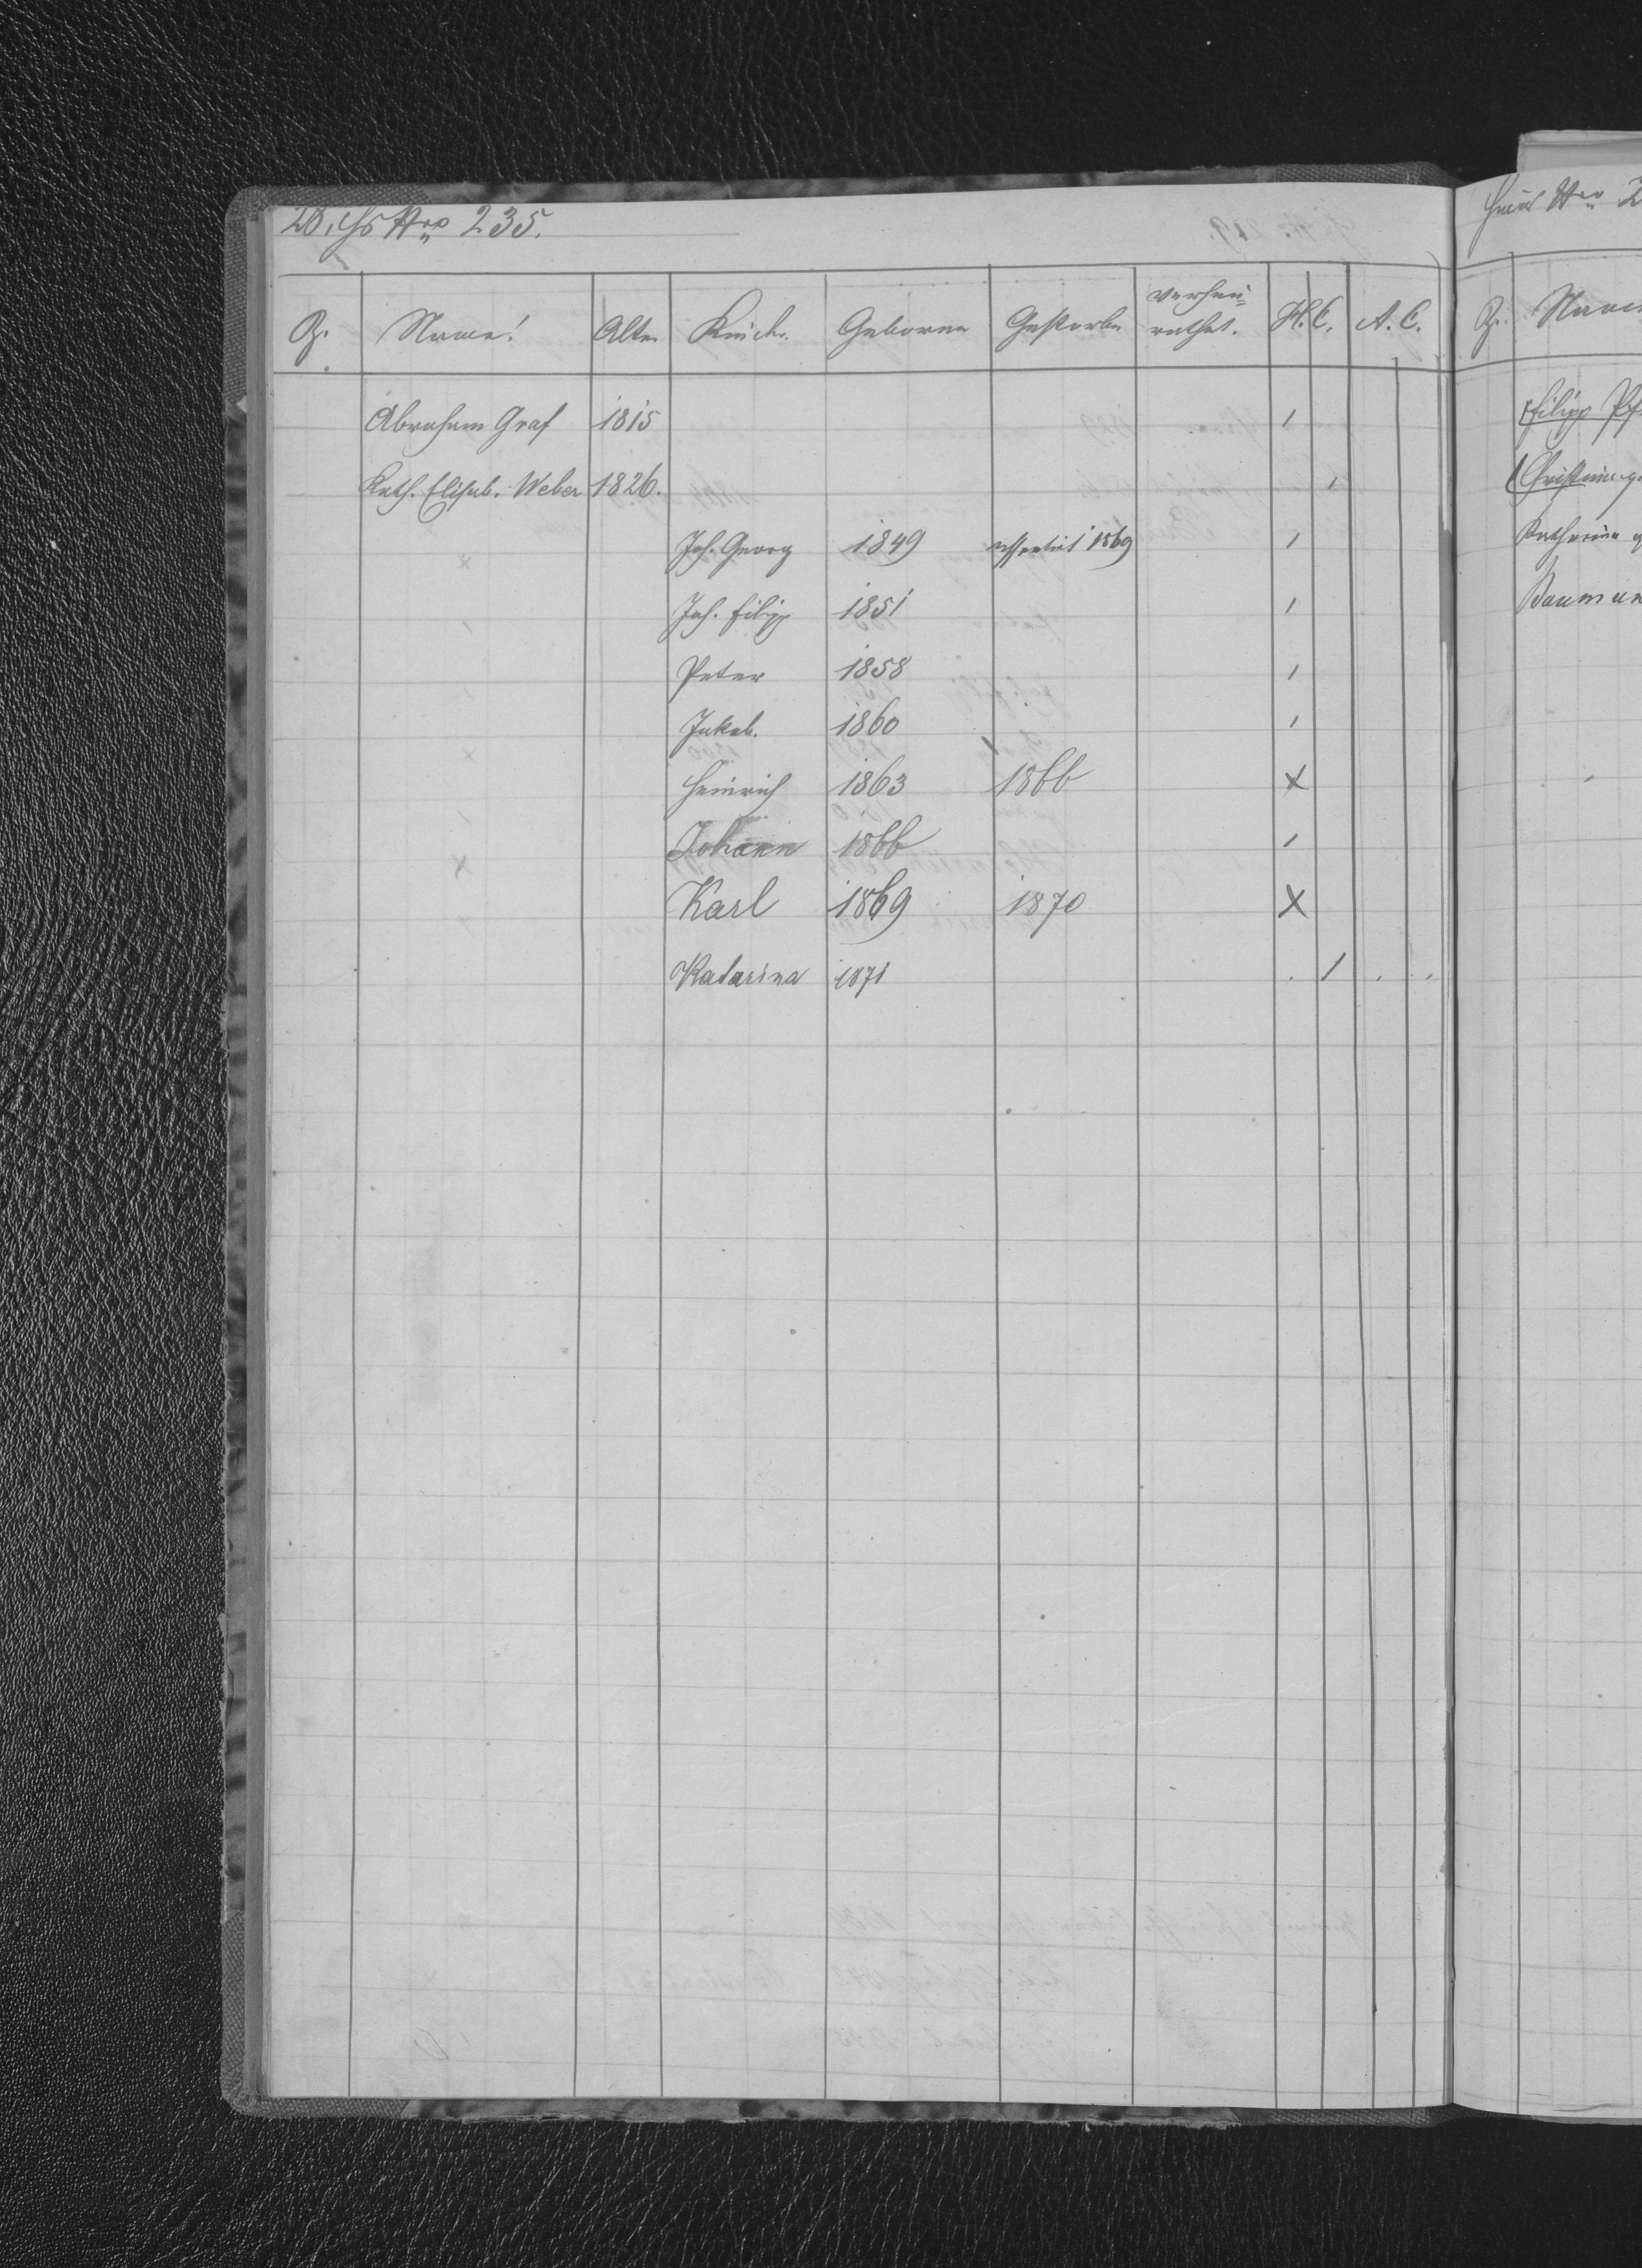 20. Hs Nro 235.
Z. Name! Alter Kinder. Geboren Gestorben verheu=
rathet. H. C. A. C.
Abraham Graf 1815 1
Kath. Elisab. Weber 1826. 1
Joh. Georg 1849 assentirt 1869 1
Joh. Filipp 1851 1
Peter 1858 1
Jakob. 1860 1
Heinrich 1863 1866 X
Johann 1866 1
Karl 1869 1870 X
Katarina 1871 . 1 . .
Haus Nro 2
Z. Name
Filipp Pf
Christina g
Katharina g
Baumun